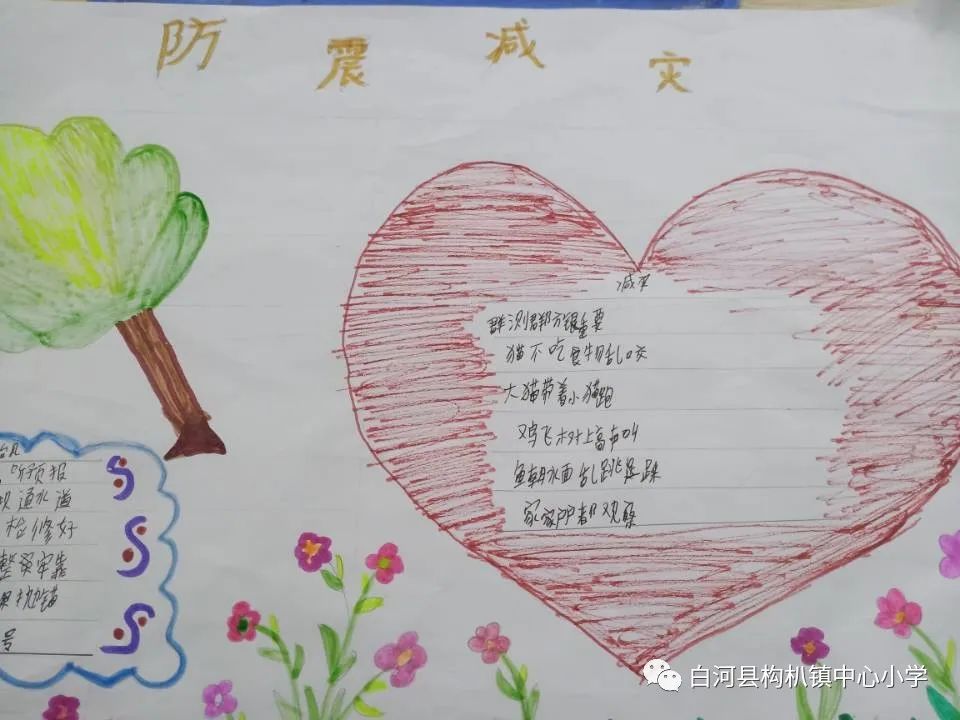 防震减灾
减灾
群测群防很重要
猫不吃食牛马乱咬
大猫带着小猫跑
鸡飞树上高声叫
鱼翻水面乱跳跶跶
家家户户都观察
听预报
通水道
检修好
整窝牢靠
号
白河县构朳镇中心小学